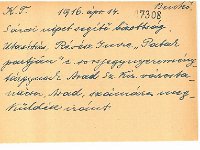 K. F. 1916. ápr. 14. Benkő
7308
Sárosi népet segítő bizottság.
Utasítás, Révész Imre, "Patak
partján" c. sorsjegynyeremény
tárgynak Arad Sz. Kir. városta-
nácsa, Arad, számára meg-
küldése iránt.